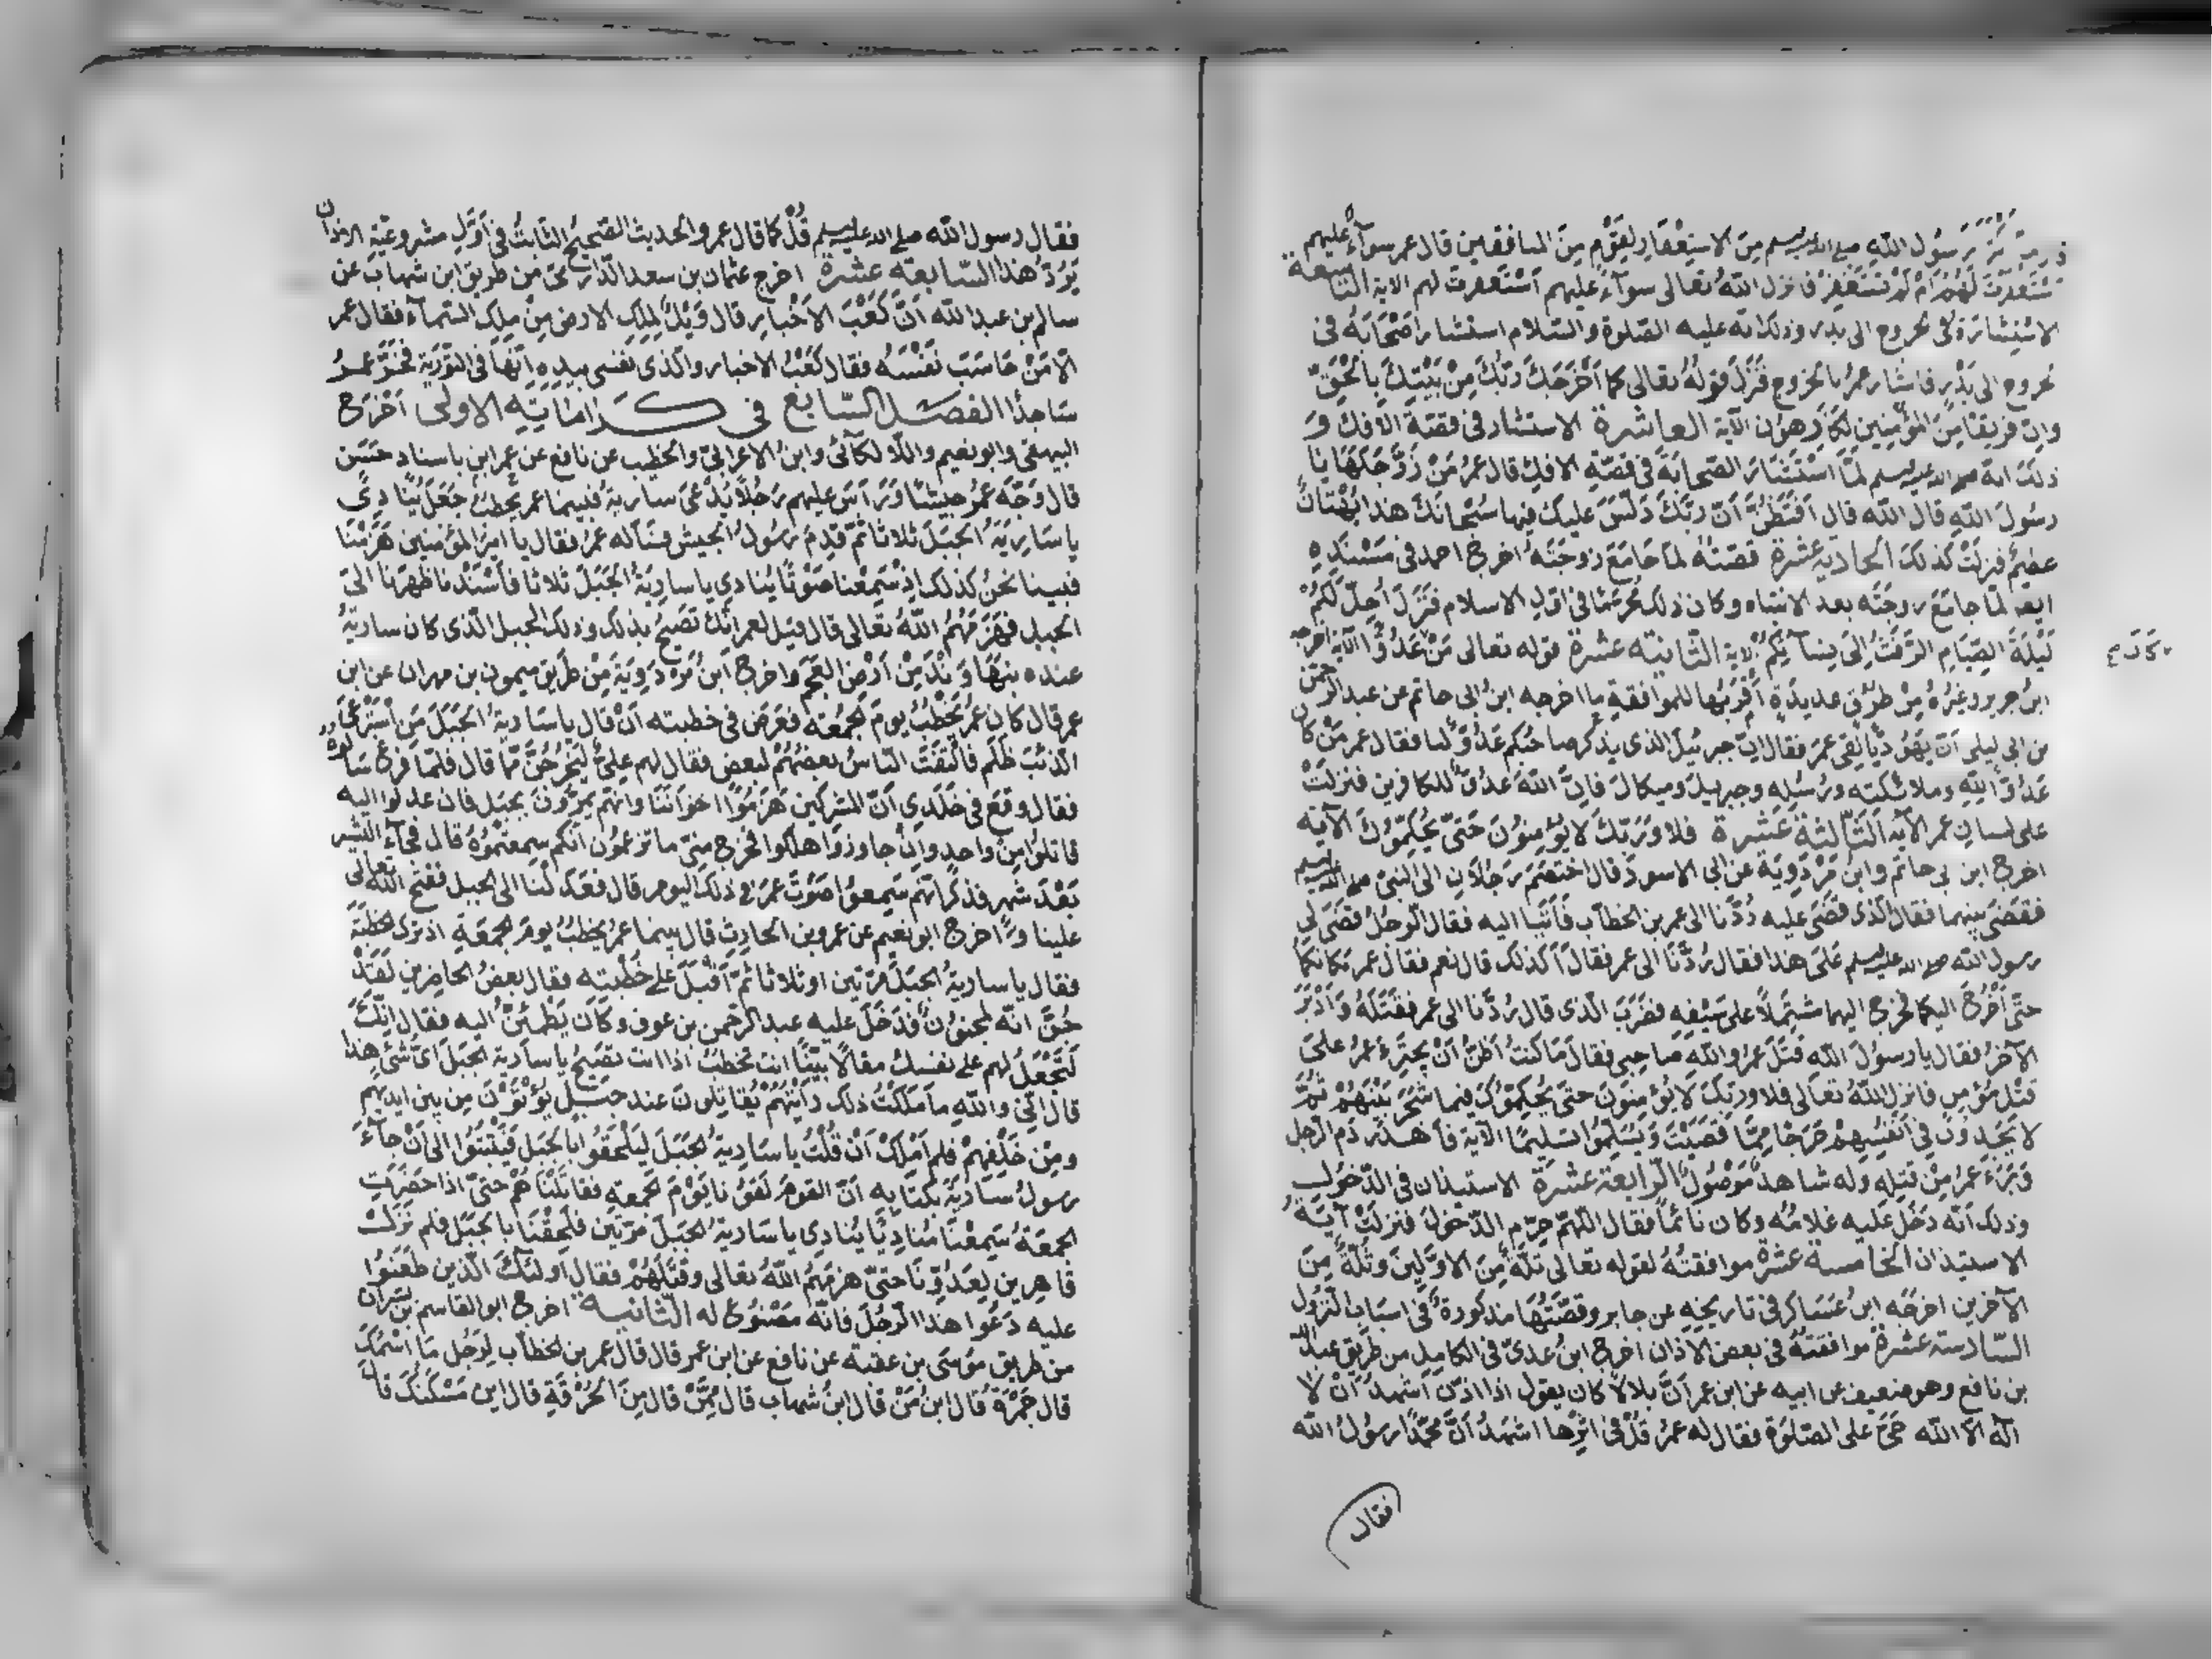 رَسُول اللّهِ صلى الله عليه وسلم مِنَ الاستِغْفَارِ لِقَوْمٍ مِنَ المنافقين قال عمر سوآءٌ عليهم
اَسْتَغْفَرْتَ لَهُمْ اَمْ لَمْ تَسْتَغْفِرْ فانزل اللّهُ تعَالى سوآءٌ عليهم اَسْتَغفرتَ لهم الاية التاسعة
الاسْتِشَارَةُ فى الخروج الى بدر وذلك انّه عليه الصّلوة والسّلام استشار اصْحَابَهُ فى
الخروج الى بَدْرٍ فاشار عمرُ بالخروج فنَزَلَ قولُهُ تعالى كما اَخْرَجَكَ رَبُّكَ مِنْ بَيْتِكَ بِالْحَقِّ
وانّ فريقًا مِنَ المُؤْمِنِين لَكارهُون الآية العاشرة الاستشار فى قصّة الافك وَ
ذلكَ انه صلى الله عليه وسلم لمّا اسْتَشَارَ الصّحَابَةَ فى قصّةِ الافك قال عمرُ مَنْ زَوَّجَكَهَا يَا
رسُولَ اللهِ قال اللّه قال اَفَتَظُنُّ اَنّ رَبَّكَ دَلَّسَ عليكَ فيها سُبْحانَكَ هذا بُهْتانٌ
عظيمٌ فنزلتْ كَذلكَ الحادية عشرة قصّتهُ لمّا جَامَعَ زوجَتَهُ اخرج احمد فى مسْنَدِهِ
انّه لمّا جامَعَ زوجَتَه بعد الانتباه وكان ذلك مُحرّمًا فى اوّلِ الاسلام فنَزلَ اُحِلّ لكُمْ
لَيْلَةَ الصِّيَامِ الرَّفَثُ اِلَى نِسَآئِكُمْ الاية الثّانية عشرة قوله تعالى مَنْ كَانَ عَدُوًّا الآية اخرجه
ابن جرير وغيْرُهُ مِنْ طرُقٍ عديدَةٍ اَقْرَبُها للموافقةِ ما اخرجه ابنُ ابى حاتم عن عبد الرحمن
بن ابى ليلى اَنّ يَهُودِيًّا لَقِىَ عمرَ فقال انّ جبرئيلَ الذى يذكره صاحبُكم عَدُوٌّ لنا فقال عمر مَنْ كان
عَدُوًّا لِلّهِ وملائكته ورُسُلِهِ وجبريلَ وميكالَ فاِنَّ اللّهَ عدُوٌّ للكافرين فنزلَتْ
على لسانِ عمر الآية الثّالثة عشرة فلا ورَبّكَ لا يُؤمِنُونَ حَتّىَ يُحَكِّمُوكَ الآية
اخرج ابن ابى حاتم وابنُ مَرْدَوِيَة عن ابى الاسود قال اختَصَمَ رَجُلانِ الى النبىّ صلى الله عليه وسلم
فقضىَ بينهما فقال الّذى قضَى عليه رُدّنا الى عمر بن الخطاب فأتَيا اليه فقال الرّجلُ قضَى لِى
رسول اللّه صلى الله عليه وسلم عَلىَ هذا فقال رُدَّنَا الى عمر فقالَ اَكذلك قال نعم فقال عمر مكانكُما
حتّى اَخْرُجَ اليكما فخرج اليهما مشتملاً على سَيْفِهِ فضَرَبَ الّذى قال رُدّنا الى عمر فقَتَلَهُ وَاَدْبَرَ
الآخرُ فقال يا رسولَ اللّهِ قتَلَ عمرُ واللّهِ صاحِبى فقالَ مَا كنتُ اَظنُّ اَنْ يجترِءَ عمرُ علىَ
قتْلِ مؤمِنٍ فانزل اللّهُ تعَالى فلا ورَبّكَ لا يُؤمِنونَ حتىَ يُحَكِّمُوكَ فيما شَجَرَ بَيْنَهُمْ ثُمَّ
لا يَجِدُونَ فى اَنفُسِهِمْ حَرَجًا مِمَّا قَضَيْتَ وَيُسَلِّمُوا تَسْلِيمًا الآية فاهدَرَ دَم الرّجل
وَبَرَءَ عمرُ مِنْ قَتلِهِ وله شاهدٌ مَوْصُولٌ الرّابعة عشرة الاستيذان فى الدّخول
وذلك اَنّه دَخَلَ عَليه غلامُه وكان نائمًا فقال اللّهُمّ حرّمِ الدّخولَ فنزلَتْ آيَةُ
الاستيذان الخامسة عشرة موافقتُهُ لقوله تعالى ثلّةٌ مِنَ الاوّلِينَ وثُلّةٌ مِنَ
الآخرين اخرجَه ابنُ عسَاكر فى تاريخِهِ عن جابر وقصّتُهَا مذكورةٌ فى اسبَابِ النّزول
السّادسة عشرة موافقتُهُ فى بعض الاذان اخرجَ ابنُ عدىّ فى الكامِلِ من طَرِيقِ عبد اللّه
بن نافع وهو ضعيف عن ابيه عن ابن عمر اَنّ بلالاً كان يقول اذا اذّنَ اشهدُ اَنْ لا
اِلَهَ الاّ اللّه حَىَّ على الصّلوة فقال له عمرُ قُلْ فى اثرِها اشهَدُ اَنَّ محمّدًا رسُولُ اللّه
فقال
فقال رسول اللّه صلى الله عليه وسلم قُلْ كما قال عمر والحديث الصّحيحُ الثّابتُ فى اَوّلِ مشروعيّةِ الاذان
يَرُدّ هذا السّابعة عشرة اخرج عثمان بن سعد الدّارمىّ من طريق ابن شهابَ عن
سالم بن عبد اللّه اَنّ كَعْبَ الاَحْبَارِ قال وَيْلٌ لِمَلِكِ الارضِ مِنْ مَلِكِ السّمآءِ فقال عمر
الاّ مَنْ حَاسَبَ نَفْسَهُ فقال كَعْبُ الاحبار والّذى نفسى بيدهِ اِنّها فى التّوريةِ فخَرَّ عمرُ
سَاجِدًا الفصل السّابع فى كراماته الاولى اَخْرَجَ
البيهقى وابو نعيم واللاّلكآئى وابنُ الاعرابىّ والخطيب عن نافع عن عمر ابن باسناد حَسَن
قال وَجّهَ عمرُ جيشًا وَرَأسَ عليهم رَجُلاً يُدْعَى سارية فبينما عمر يخطبُ جعَلَ يُنادِى
يا سَارِيَةُ الجَبَلَ ثلاثًا ثمّ قدِمَ رَسُولُ الجيش فسَأله عمرُ فقال يا اميرَ المؤمنين هُزِمْنَا
فبينا نحنُ كذلك اِذْ سَمِعْنا صَوْتًا يُنادى يا سارِيَةُ الجَبَلَ ثلاثًا فاَسْنَدْنا ظهرَنا الى
الجبل فهَزَمَهُمُ اللّهُ تعَالى قال قيل لعمر انّكَ تَصِيحُ بذلك وذلك الجبل الّذى كان ساريةُ
عنده بنَهَاوَنْدَ مِنْ اَرْضِ العَجَمِ واخرج ابنُ مَرْدَوِيَةَ مِنْ طَريق ميمون بن مهران عن ابن
عمر قال كان عمرُ يَخْطُبُ يومَ الجمعَةِ فعَرَضَ فى خطبته اَنْ قال يا سَارية الجبَلَ مَنِ اسْتَرْعَى
الذّئبَ ظَلَمَ فالْتَفَتَ النّاسُ بعضُهُمْ لبعض فقال لهم علِىٌّ لَيَخْرُجَنَّ مّما قال فلمّا فرغَ سَألوُه
فقال وقَعَ فى خَلَدِى اَنّ المشركين هَزَمُوا اخوَانَنَا وانهم يَمرّونَ بجبَلٍ فان عدَلوا اليه
قاتلوُا مِنْ واحدٍ وانْ جاوزوَا هلكوا فخرج منّى ما تزعمُون انّكم سمِعتُمُوهُ قال فجآءَ البشير
بَعْدَ شهر فذكَرَ انّهم سَمِعوُا صَوْتَ عمرَ فى ذلك اليوم قال فعَدَلْنا الى الجبل ففتح اللّهُ تعالى
علينا واخرج ابو نعيم عن عمرو بن الحارِثِ قال بينما عمرُ يخطبُ يومَ جمعَةٍ اذ ترك الخطبَةَ
فقال يا ساريةُ الجبَلَ مَرّتين او ثلاثًا ثمّ اَقْبَلَ على خُطبته فقال بعضُ الحاضِرِينَ لَقَدْ
جُنّ انّه لمجنوُنٌ فدَخَلَ عليه عبد الرحمن بن عوف وكانَ يَطْمَئِنُّ اليه فقال اِنّكَ
لَتَجْعَلُ لهم على نفسِكَ مقالاً بيّنًا انت تخطبُ اذا انت تصِيحُ يا سارية الجبَلَ اىُّ شئٍ هذا
قال انّى واللّهِ ما مَلَكْتُ ذلك رَأيْتُهُمْ يُقاتِلونَ عند جَبَلٍ يُؤْتَوْنَ مِن بين ايديهم
ومِنْ خَلْفِهِمْ فلم اَمْلِكْ اَنْ قُلْتُ يا سَارِيةُ الجَبَلَ ليَلْحَقُوا بالجَبَلِ فَبَقُوا الى اَنْ جآءَ
رسولُ سَارِيَةَ بكتابِهِ اَنّ القومَ لَقُونا يَوْمَ الجمعة فقاتَلْنَاهُمْ حتىّ اذا حَضَرَتِ
الجمعَةُ سَمِعْنَا مُنَادِيًا يُنَادِى يا سَاريةُ الجَبَلَ مَرّتين فلَحِقْنَا بالجَبَلِ فلم نَزَلْ
قاهِرين لِعَدُوِّنَا حتىّ هزمَهُمُ اللّهُ تعَالى وقتَلَهُمْ فقال اُولئكَ الّذين طَعَنوُا
عليه دَعُوا هذا الرّجُلَ فانّه مصنوعٌ له الثّانية اخرج ابو القاسم بن بشران
من طريق موسَى بن عقبة عن نافع عن ابن عمر قال قال عمر بن الخطاب لِرَجُلٍ مَا اسْمُكَ
قال جَمْرَةُ قال ابنُ مَنْ قال ابنُ شهاب قال مِمَّنْ قال مِنَ الحُرْقَةِ قال اين مَسْكَنُكَ قال